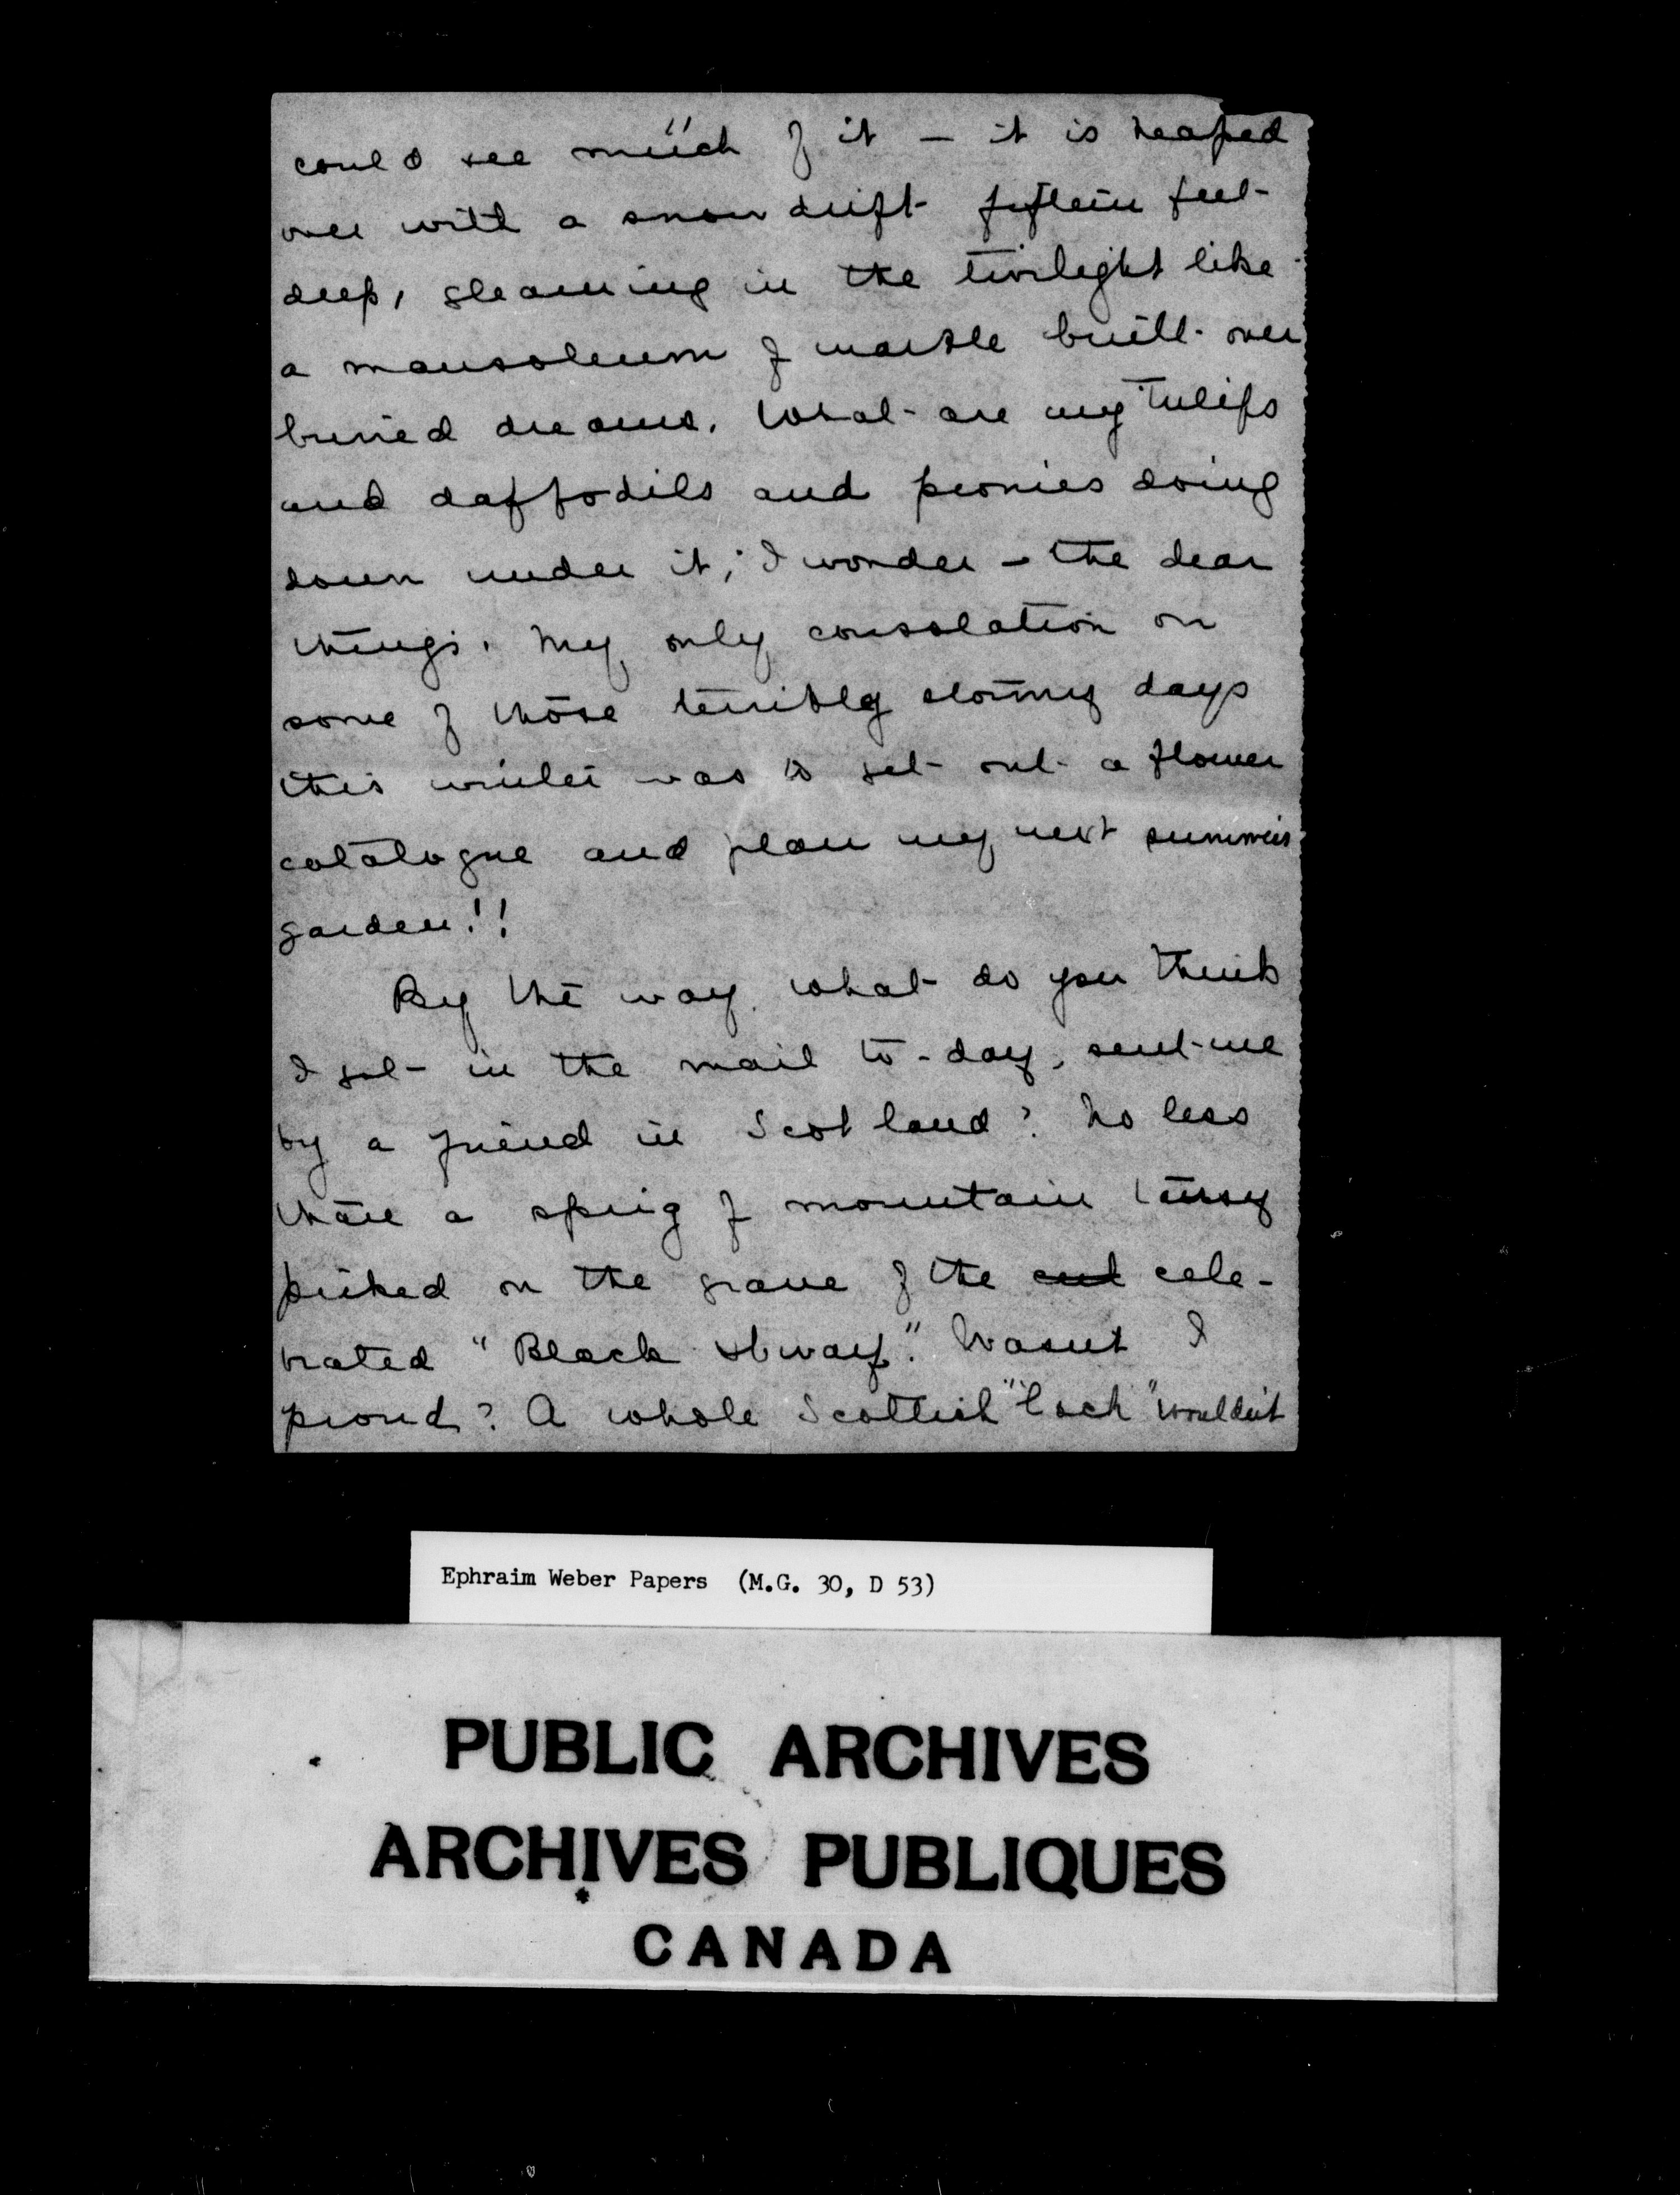 could see much of it — it is heaped
over with a snow drift fifteen feet
deep, gleaming in the twilight like
a mausoleum of marble built over
buried dreams. What are my tulips
and daffodils and peonies doing
down under it, I wonder — the dear
things. My only consolation on
some of those terribly stormy days
this winter was to get out a flower
catalogue and plan my next summer's
garden!!
By the way, what do you think
I got in the mail to-day, sent me
by a friend in Scotland? No less
than a sprig of mountain
picked on the grave of the cele-
brated "Black Dwarf." Wasn't I
proud? A whole Scottish "loch" wouldn't
Ephraim Weber Papers (M.G. 30, D 53)
PUBLIC ARCHIVES
ARCHIVES PUBLIQUES
CANADA